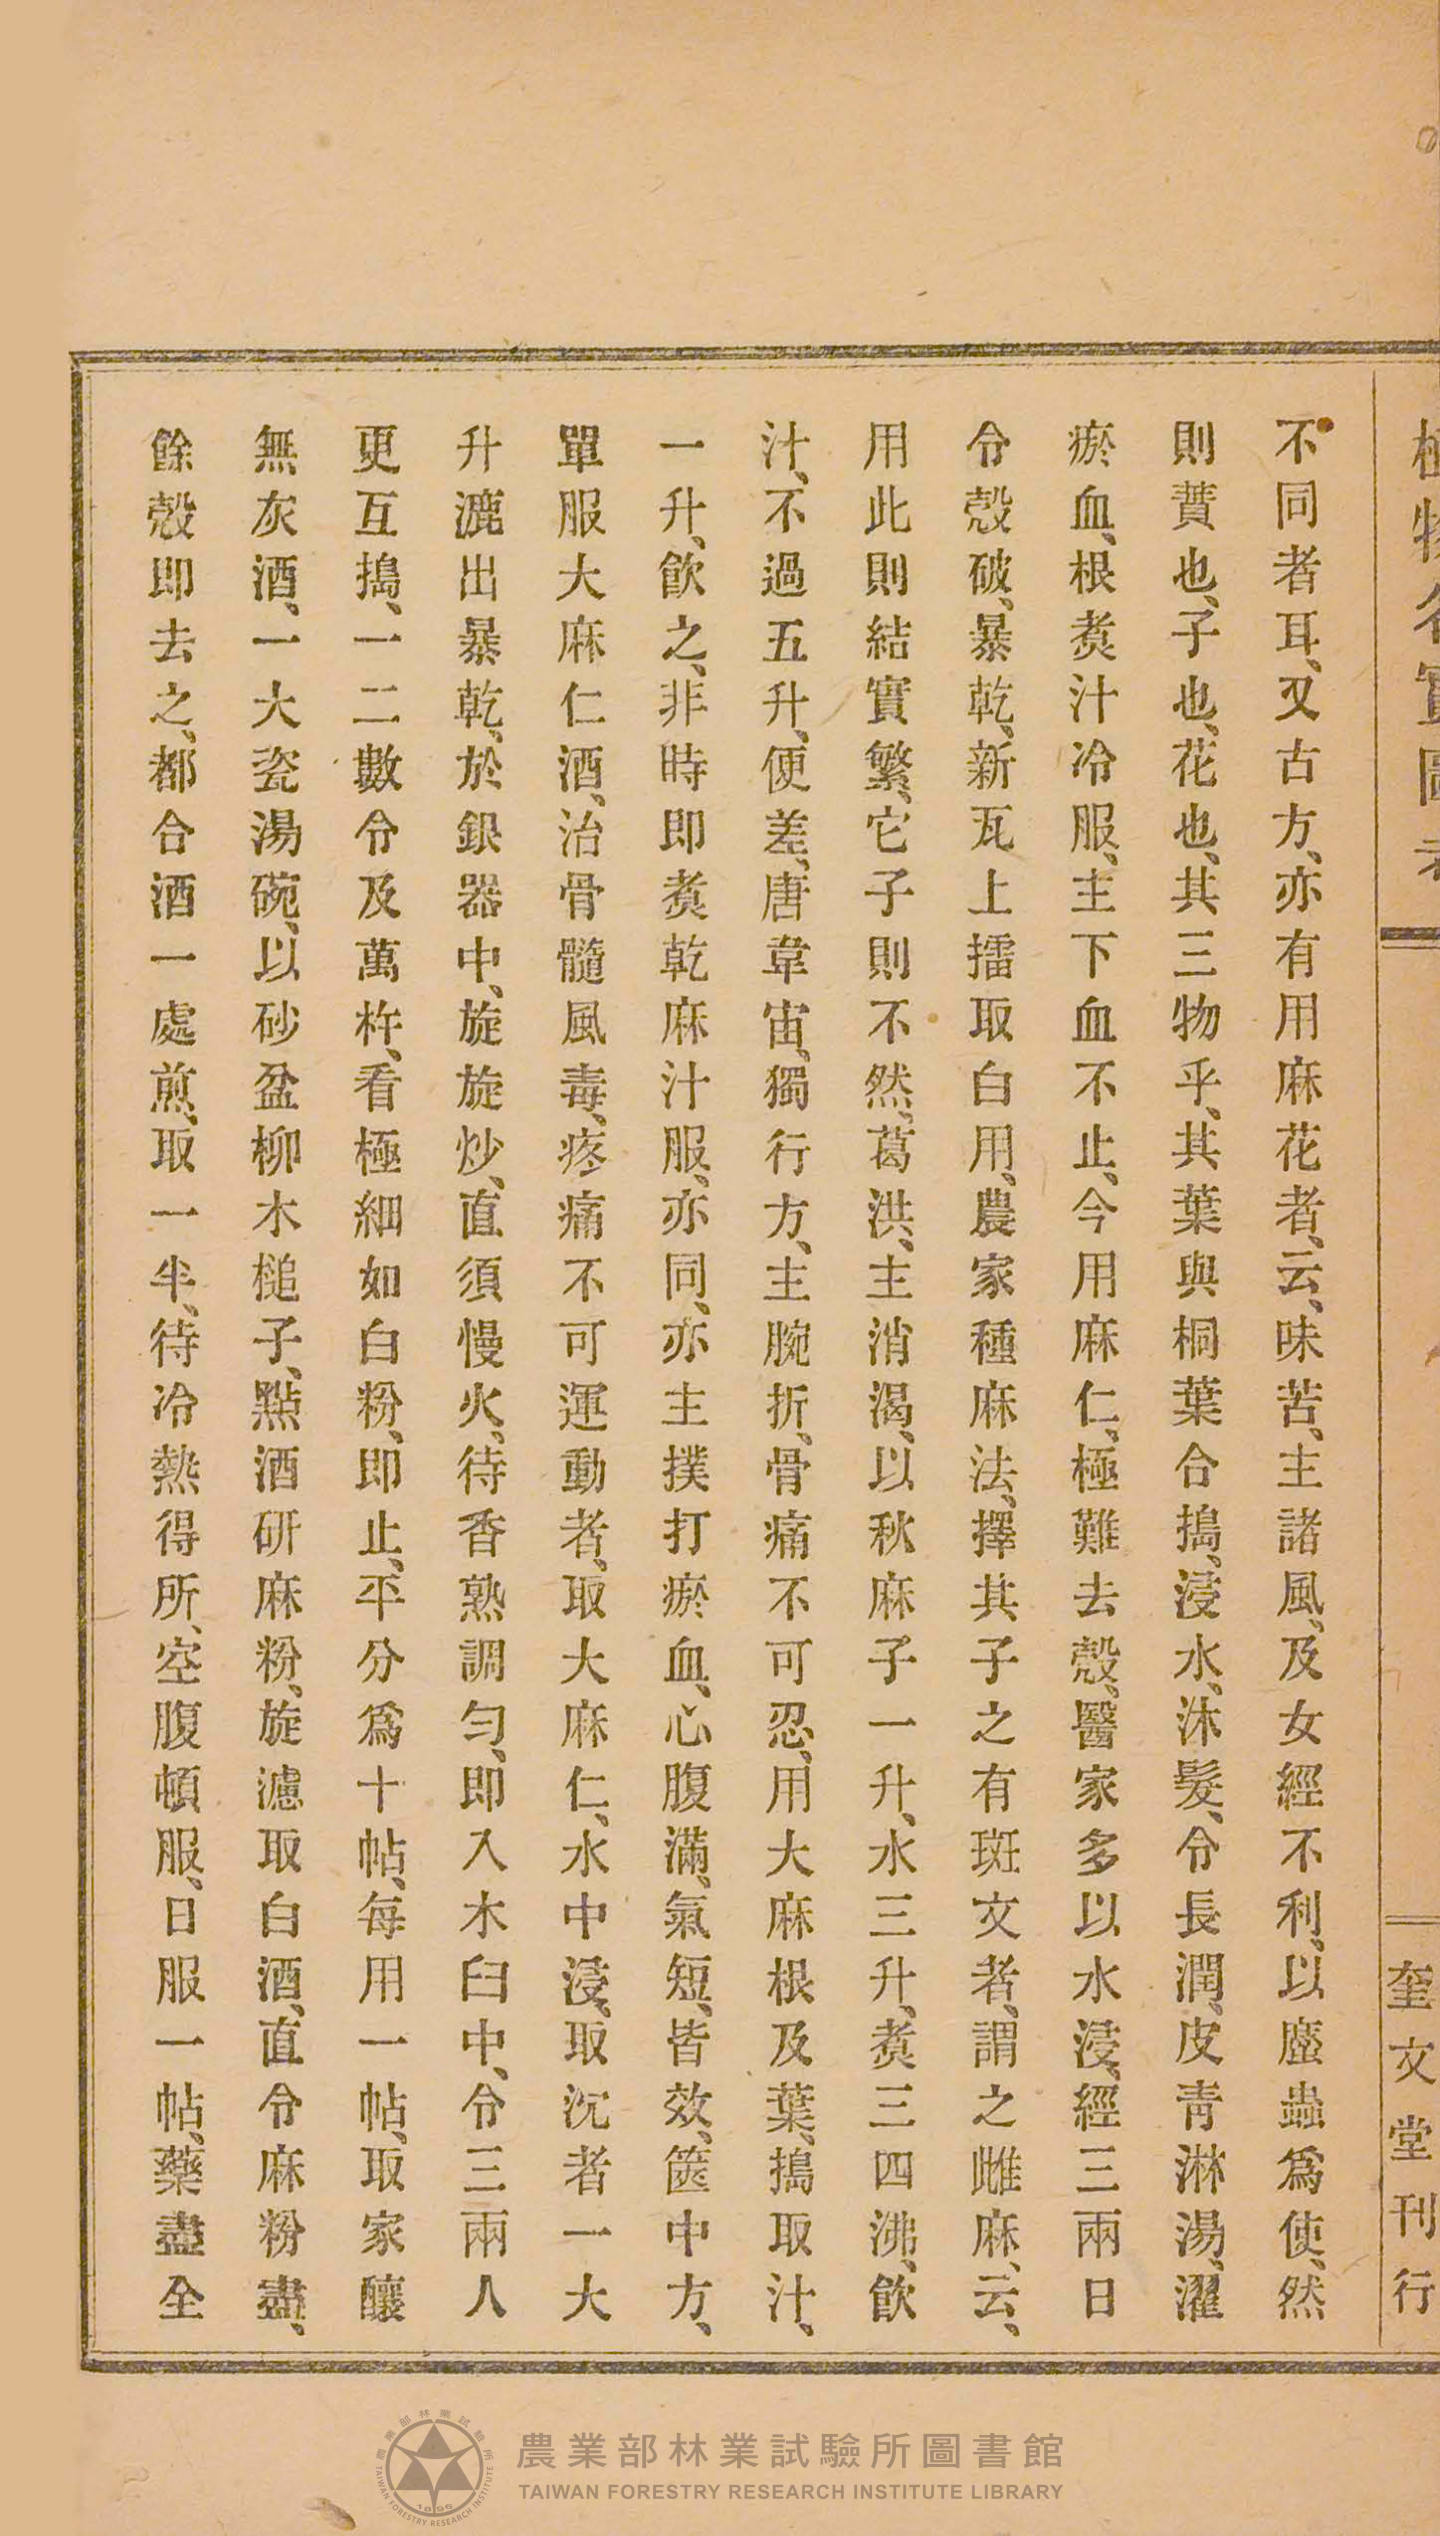 植物名實圖考
奎文堂刊行
不同者耳、又古方、亦有用麻花者、云、味苦、主諸風、及女經不利、以䗪蟲爲使、然
則蕡也、子也、花也、其三物乎、其葉與桐葉合搗、浸水、沐髮、令長潤、皮靑淋湯、濯
瘀血、根煑汁冷服、主下血不止、今用麻仁、極難去殼、醫家多以水浸、經三兩日
令殼破、暴乾、新瓦上擂取白用、農家種麻法、擇其子之有斑文者、謂之雌麻、云、
用此則結實繁、它子則不然、葛洪、主消渴、以秋麻子一升、水三升、煑三四沸、飮
汁、不過五升、便差、唐韋宙、獨行方、主腕折、骨痛不可忍、用大麻根及葉、搗取汁、
一升、飮之、非時即煑乾麻汁服、亦同、亦主撲打瘀血、心腹滿、氣短、皆效、篋中方、
單服大麻仁酒、治骨髓風毒、疼痛不可運動者、取大麻仁、水中浸、取沉者一大
升漉出暴乾、於銀器中、旋旋炒、直須慢火、待香熟調勻、即入木臼中、令三兩人
更互搗、一二數令及萬杵、看極細如白粉、即止、平分爲十帖、每用一帖、取家釀
無灰酒、一大瓷湯碗、以砂盆柳木槌子、點酒硏麻粉、旋濾取白酒、直令麻粉盡、
餘殼即去之、都合酒一處煎、取一半、待冷熱得所、空腹頓服、日服一帖、藥盡全
農業部林業試驗所圖書館
TAIWAN FORESTRY RESEARCH INSTITUTE LIBRARY
農業部林業試驗所
TAIWAN FORESTRY RESEARCH INSTITUTE
1895